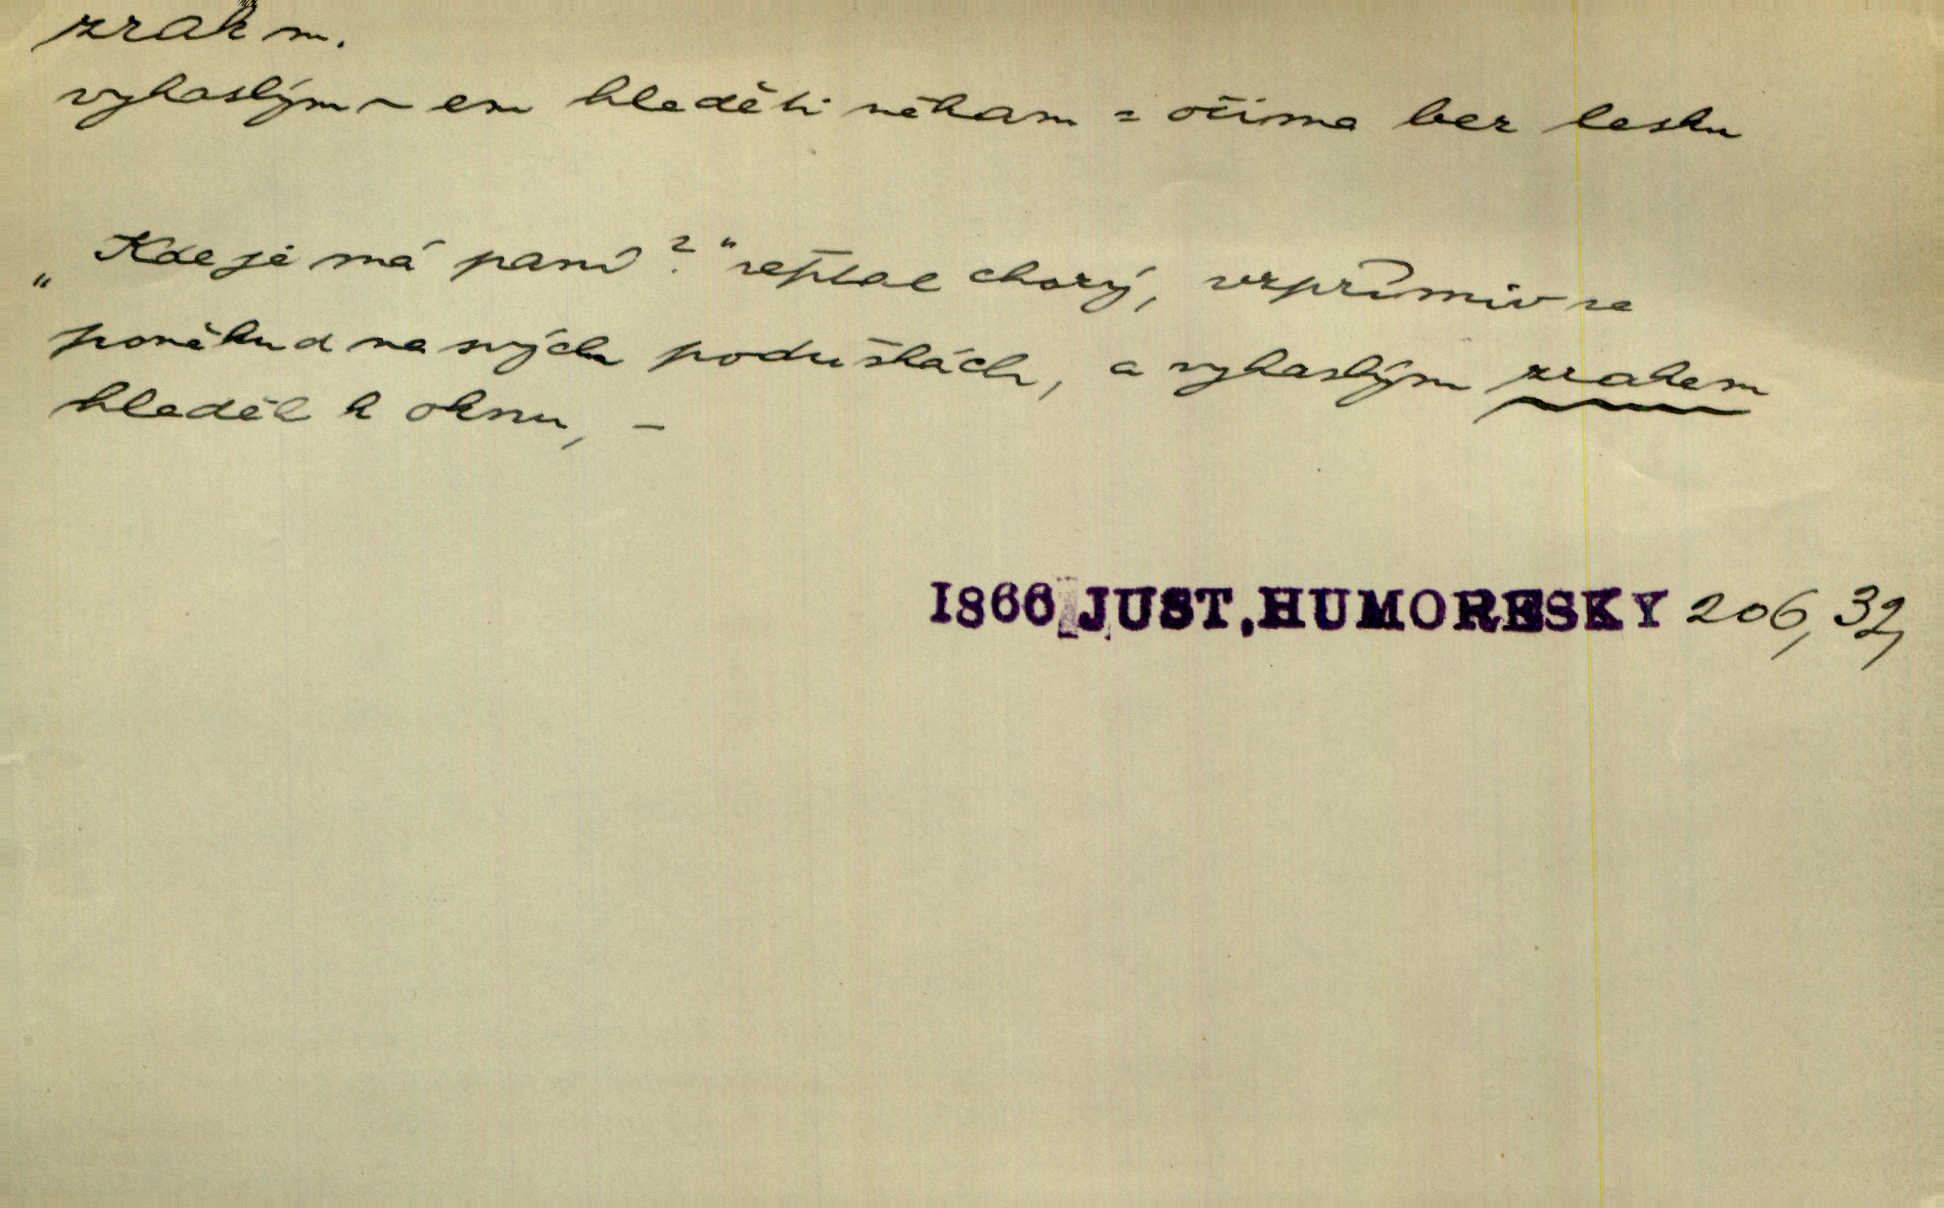 zrak m.
vyhaslým ~ em hleděti někam = očima bez lesku
„Kde je má paní?“ reptal chorý, vzpřímiv se
poněkud na svých poduškách, a vyhaslým zrakem
hleděl k oknu, –
1866 JUST, HUMORESKY 206, 32,